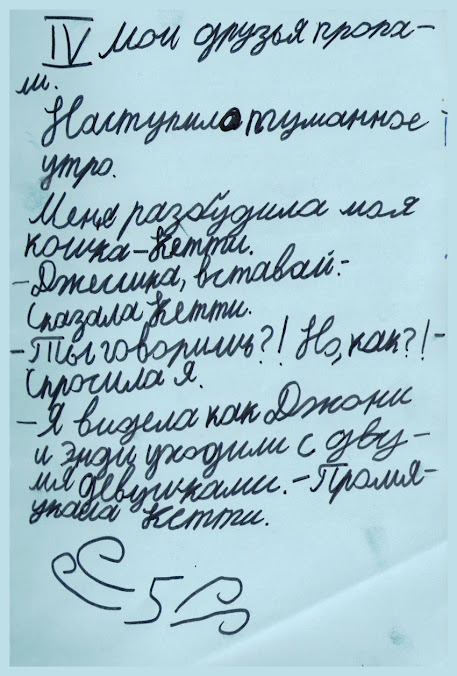 IV Мои друзья пропа-
ли.
Наступило туманное
утро.
Меня разбудила моя
кошка-Кетти.
-Джесика, вставай.-
Сказала Кетти.
-Ты говоришь?! Но, как?!-
Спросила я.
-Я видела как Джони
и Энди уходили с дву-
мя девушками.-Промя-
укала Кетти.
5